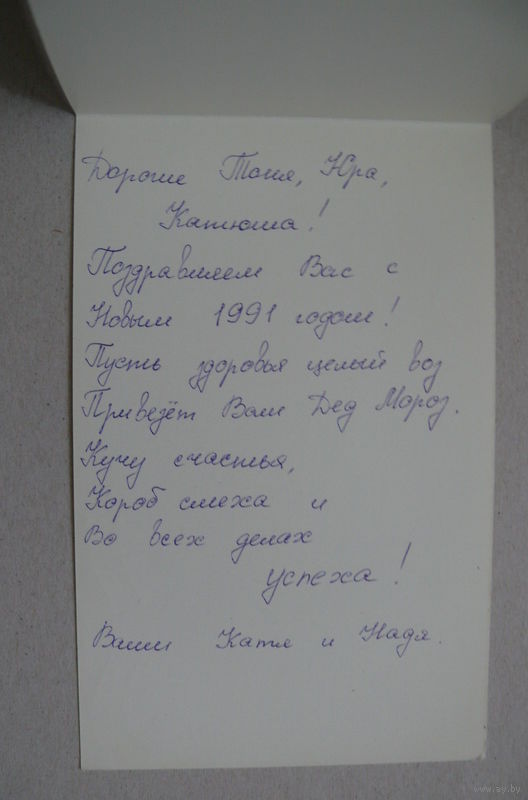 Дорогие Тоня, Юра,
Катюша!
Поздравляем Вас с
Новым 1991 годом!
Пусть здоровья целый воз
Привезёт Вам Дед Мороз.
Кучу счастья,
Короб смеха и
Во всех делах
успеха!
Ваши Катя и Надя.
www.ay.by